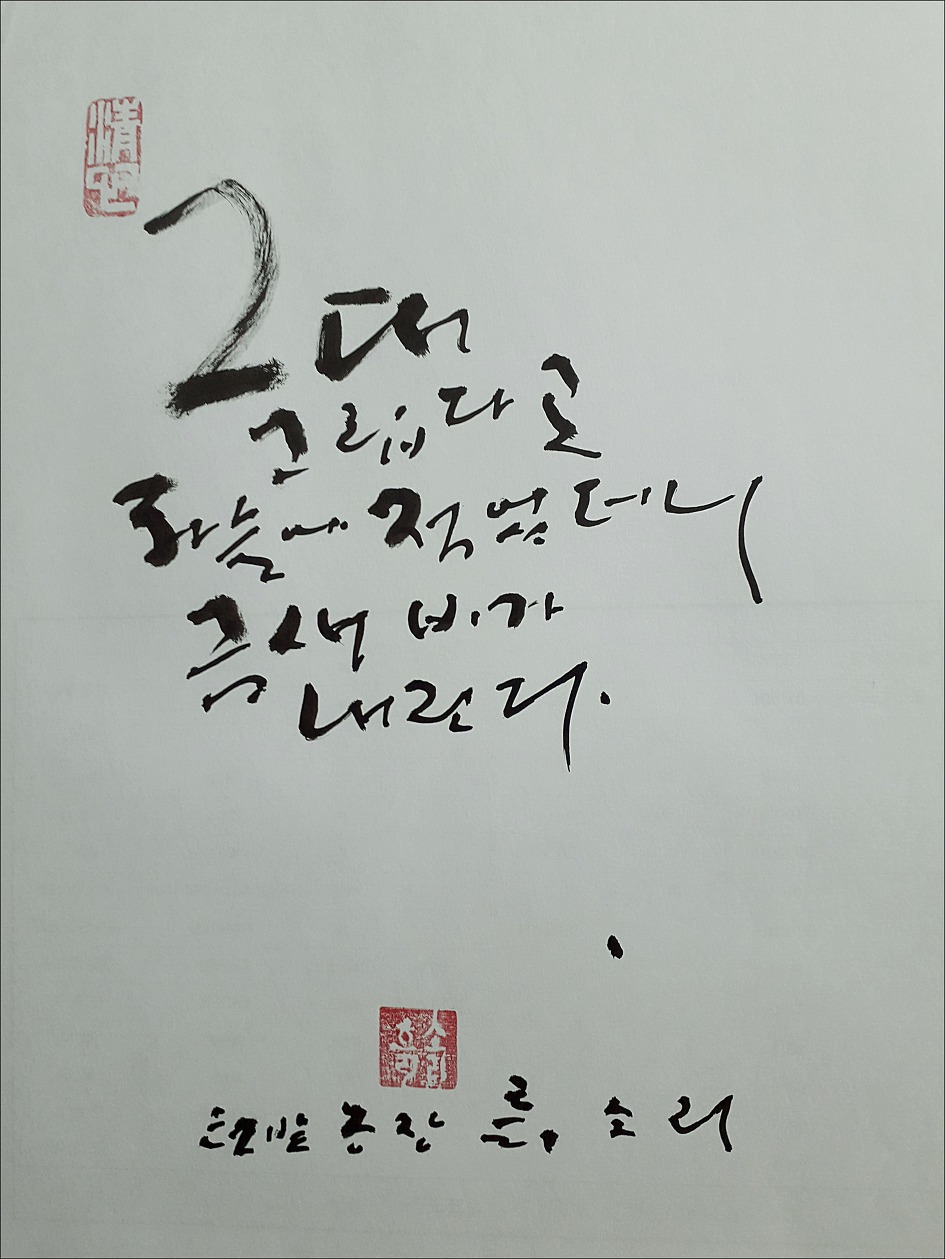 그대
그립다고
하늘에 적었더니
금새 비가
내린다.
소리
농장 소리